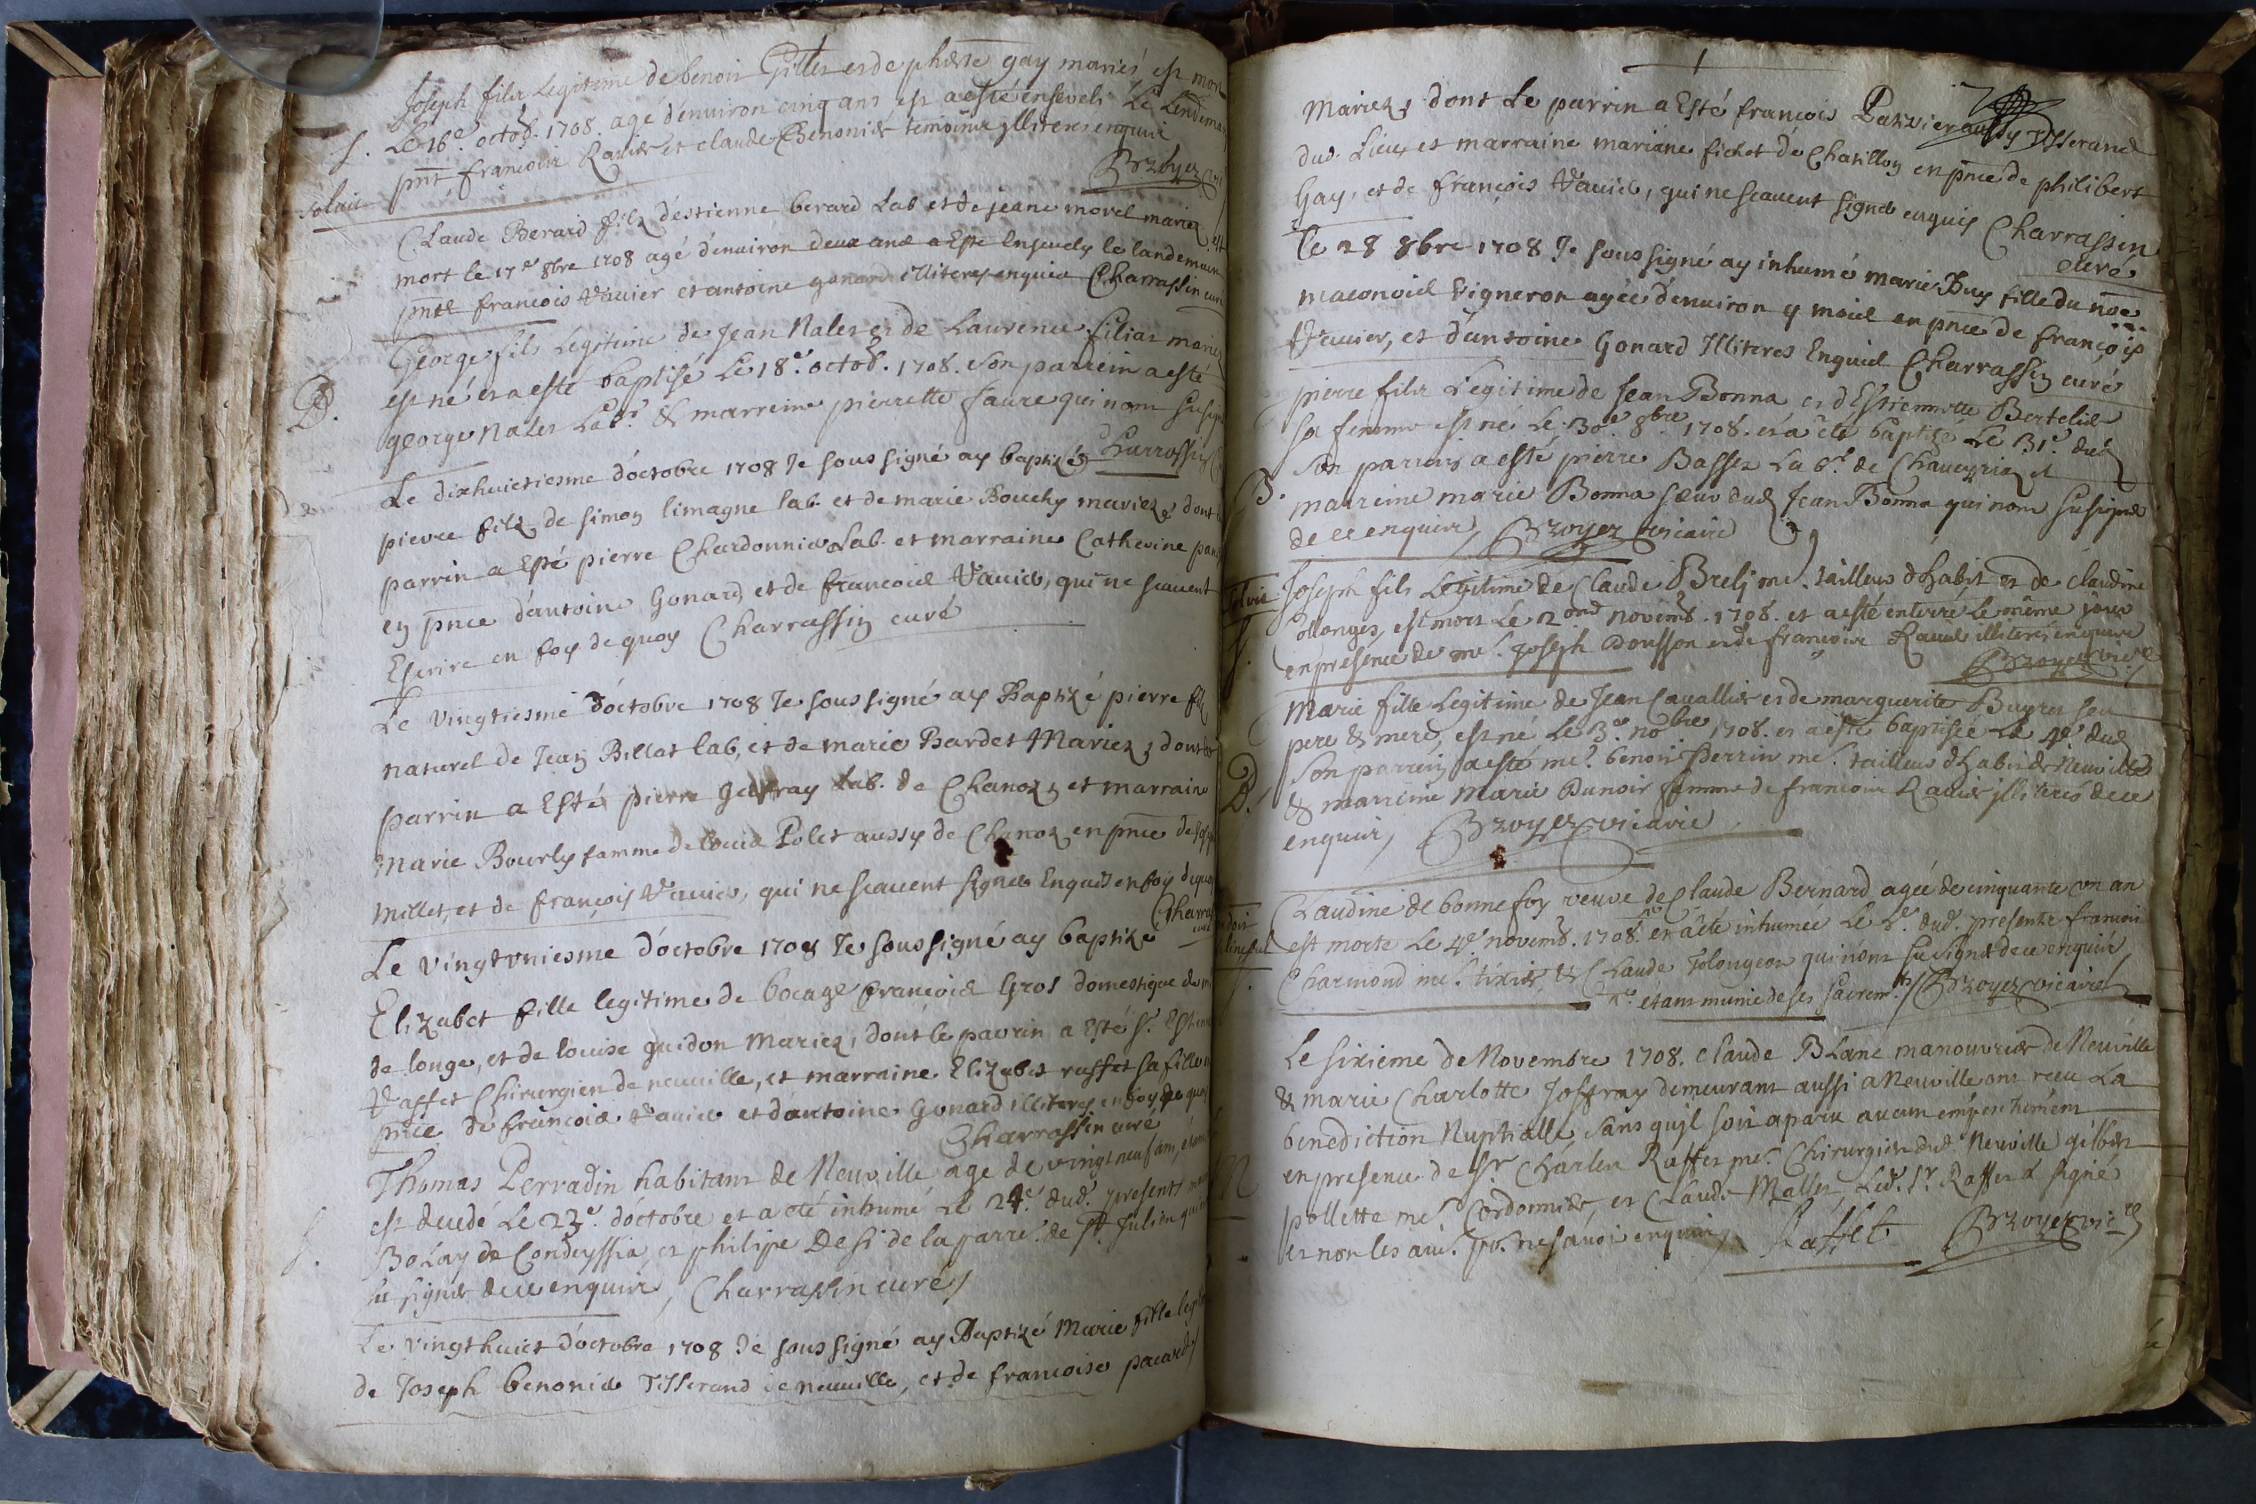 Joseph fils Legitime de benoir Gillet et de pherre gay mariés est mort
S. Le 16e octob. 1708. agé d'environ cinq ans et a esté enseveli Le Lendemain
solvit pnt francois Ravier et claude Benonier temoins illiteres enquis
Brzoyez
Claude Berard filz d'estienne berard Lab et de jeane morel mariez est
mort le 17e 8bre 1708 agé d'environ deux ans a Esté Ensevely le landemain
pnts francois Vavier et antoine gonard illiteres enquis Charrassin curé
George fils Legitime de Jean Nales et de Laurence filias mariez
B. est né et a esté baptisé Le 18e. octob. 1708. son parrein a esté
george Nales Labr. & marreine pierrette faure qui nont su signer
Charrassin
Le dixhuictiesme d'octobre 1708 Je sous signé ay baptizé
pierre filz de simon limagne lab. et de marie Bouchy mariez dont le
parrin a Esté pierre Chardonnier Lab. et marraine Catherine
en pnce d'antoine Gonard, et de francois Vavier, qui ne scavent
Escrire en foy de quoy Charrassin curé
Le vingtiesme d'octobre 1708 Je sous signé ay Baptizé pierre filz
naturel de Jean Billat lab, et de marie Bardet Mariez, dont le
parrin a Esté pierre geffray Lab. de Chanoz, et marraine
Marie Bourly famme de Louis Polet aussy de Chanoz en pnce de
Millet, et de françois Vavier, qui ne scavent signer Enquis en foy de quoy
Charrassin curé
Le vingtuniesme d'octobre 1708 Je sous signé ay baptizé
Elizabet fille legitime de bocage francois Gros domestique de
de longe, et de louise guidon Mariez, dont le parrin a Esté Sr. Estienne
Vaffet Chirurgien de neuville, et marraine Elizabet raffet sa fille
pnce de francois Vavier et d'antoine Gonard illiteres en foy de quoy
Charrassin curé
Thomas Perradin habitant de Neuville age de vingt neuf ans,
S. est decedé Le 23e. d'octobre et a eté inhumé Le 24e. dud. presents
Bolay de Condeyssia, et philipe Desi de la parre. de St. Julien qui
su signer de ce enquis, Charrassin curé
Le vingthuict d'octobre 1708 Je sous signé ay Baptizé Marie fille
de Joseph benonier Tisserand de neuville, et de francoise pacard
Mariez, dont Le parrin a Esté francois Pauvier aussy Tisserand
dud. Lieu, et marraine mariane fichet de Chatillon en pnce de philibert
Gay, et de françois Vavier, qui ne scavent signer enquis Charrassin
curé
Le 28 8bre 1708 Je soussigné ay inhumé marie Buy fille du noe
maconois Vigneron agée d'environ 9 mois en pnce de françois
Vavier, et d'antoine Gonard Illiteres Enquis Charrassin curé
pierre fils Legitime de Jean Bonna et d'Estiennette Bertelier
sa femme est né Le. 30e. 8bre 1708. et a eté baptisé Le 31e. dud
B. Son parrain a esté pierre Basset Labr. de Chaveyriaz et
marreine marie Bonna sœur dud Jean Bonna qui nont su signer
de ce enquis, Brzoyez vicaire
solvit Joseph fils Legitime de Claude Brelj me. tailleur d'habit et de claudine
ollonges, est mort Le 2ond novemb. 1708. et a esté enterré Le même jour
S. en presence de me. Joseph Dousson et de francois Ravier illiteres enquis
Brzoyez vicre
Marie fille Legitime de Jean Cavallier et de marguerite Buyres son
pere & mere, est né Le 3e. nobre 1708. et a esté baptisée Le 4e dud
Son parrein a esté me. benoit Perrin me. tailleur d'habit de Neuville
B. & marreine Marie Bunoir femme de francois Ravier illiteres de ce
enquis, Brzoyez vicaire
Claudine de bonnefoy veuve de Claude Bernard agée de cinquante un an
est morte Le 4e novemb. 1708. et a été inhumée Le 5e. dud. presents francois
S. Charmond me. tixier, & Claude Tolongeon qui nont su signer de ce enquis,
etant munie de ses sacremts / Brzoyez vicaire
Le sixieme de Novembre 1708. claude Blanc manouvrier de Neuville
& marie Charlotte Joffray demeurant aussi a Neuville ont receu La
benediction Nuptialle, sans quil soit aparu aucun empechement
M en presence de Sr. Charles Raffet me. Chirurgien dud. Neuville gilbert
pollette me. Cordonnier, et Claude Mallet, Led. Sr. Raffet a signé
et non les aut. pr. ne savoir enquis, Raffet Brzoyez vicre